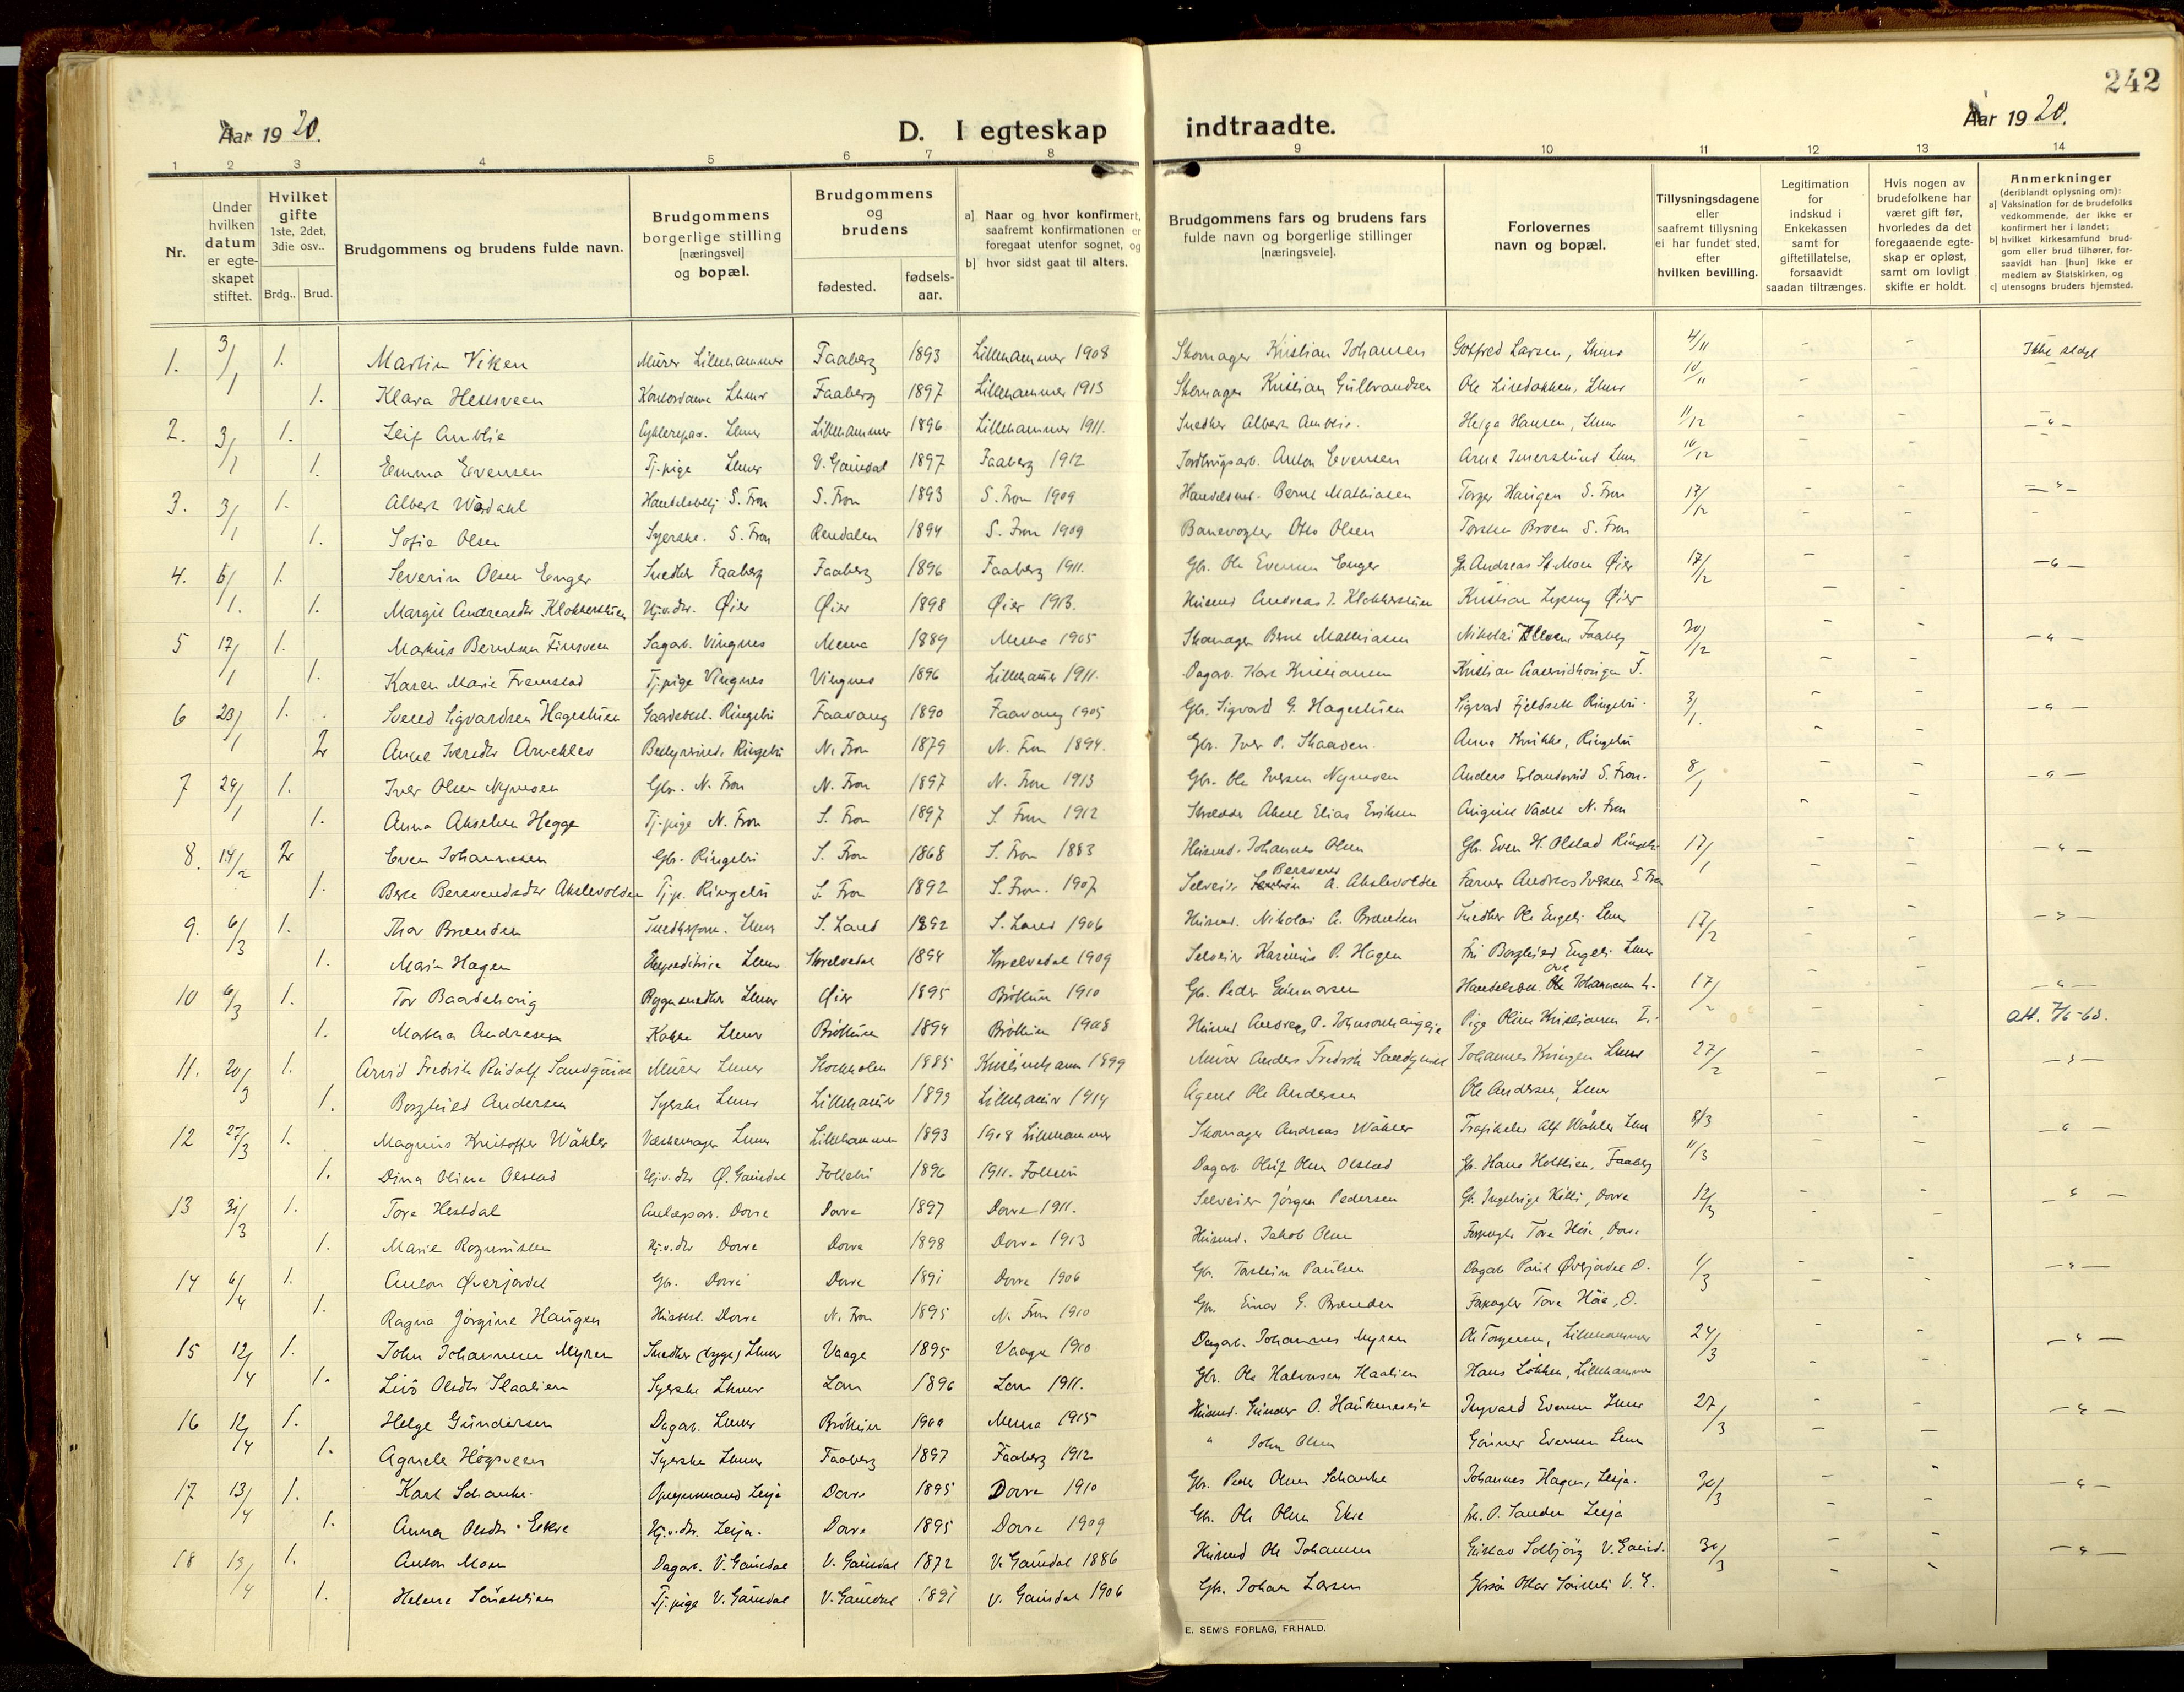 242
Aar 1920.
D. I egteskap indtraadte.
Aar 1920.
1 2 3 4 5 6 7 8 9 10 11 12 13 14
Nr.
Under hvilken datum er egte-skapet stiftet.
Hvilket gifte 1ste, 2det, 3die osv..
Brdg.. Brud.
Brudgommens og brudens fulde navn.
Brudgommens borgerlige stilling [næringsvei] og bopæl.
Brudgommens og brudens
fødested. fødsels-aar.
a] Naar og hvor konfirmert, saafremt konfirmationen er foregaat utenfor sognet, og
b] hvor sidst gaat til alters.
Brudgommens fars og brudens fars fulde navn og borgerlige stillinger [næringsveie].
Forlovernes navn og bopæl.
Tillysningsdagene eller saafremt tillysning ei har fundet sted, efter hvilken bevilling.
Legitimation for indskud i Enkekassen samt for giftetillatelse, forsaavidt saadan tiltrænges.
Hvis nogen av brudefolkene har været gift før, hvorledes da det foregaaende egte-skap er opløst, samt om lovligt skifte er holdt.
Anmerkninger (deriblandt oplysning om):
a] Vaksination for de brudefolks vedkommende, der ikke er konfirmert her i landet;
b] hvilket kirkesamfund brud-gom eller brud tilhører, for-saavidt han [hun] ikke er medlem av Statskirken, og
c] utensogns bruders hjemsted.
1. 3/1 1. Martin Viken Murer Lillehammer Faaberg 1893 Lillehammer 1908 Skomager Kristian Johansen Gotfred Larsen, Lhmr 4/11 - - Ikke slegt
1. Klara Hellsveen Kontordame Lhmr Faaberg 1897 Lillehammer 1913 Skomager Kristian Gulbrandsen Ole Lisebakken, Lhmr 10/11 - -
2. 3/1 1. Leif Amblie Cyklerepar. Lhmr Lillehammer 1896 Lillehammer 1911. Snedker Albert Amblie. Helga Hansen, Lhmr 11/12 - - - " -
1. Emma Evensen Tj.pige Lhmr V. Gausdal 1897 Faaberg 1912 Jordbrugsarb. Anton Evensen Arne Imerslund Lhmr 10/12 - -
3. 3/1 1. Albert Wårdahl Handelsbetj. S. Fron S. Fron 1893 S. Fron 1909 Handelsmd. Bernt Mathiasen Torger Haugen S. Fron 17/12 - - - " -
1. Sofie Olsen Syerske. S. Fron Rendalen 1894 S. Fron 1909 Banevogter Otto Olsen Torsten Broen S. Fron - -
4. 6/1. 1. Severin Olsen Enger Snedker Faaberg Faaberg 1896 Faaberg 1911. Gbr. Ole Evensen Enger Gb. Andreas St. Moen Øier 17/12 - - - " -
1. Margit Andreasdtr. Klokkerstuen Hj.v.dtr. Øier Øier 1898 Øier 1913. Husmd Andreas J. Klokkerstuen Kristian Lysing Øier - -
5 17/1 1. Markus Berntsen Finsveen Sagarb. Vingnes Mesna 1889 Mesna 1905 Skomager Bernt Mathiasen Nikolai Faaberg 30/12 - - - " -
1. Karen Marie Fremstad Tj.pige Vingnes Vingnes 1896 Lillehamer 1911. Dagarb. Karl Kristiansen Kristian F. - -
6 23/1 1. Svend Sigvardsen Hagestuen Gaardsbest. Ringebu Faavang 1890 Faavang 1905 Gbr. Sigvard G. Hagestuen Sigvard Fjeldseth Ringebu. 3/1. - - - " -
2. Anne Iversdtr Arneklev Bestyrerinde Ringebu N. Fron 1879 N. Fron 1894. Gbr. Iver P. Skaaden. Anna Brikke, Ringebu - -
7 24/1 1. Iver Olsen Nymoen Gbr. N. Fron N. Fron 1897 N. Fron 1913 Gbr. Ole Iversen Nymoen Anders S. Fron. 8/1 - - - " -
1. Anna Akselsen Hegge Tj.pige N. Fron S. Fron 1897 S. Fron 1912 Skrædder Aksel Elias Eriksen August N. Fron - -
8. 14/2 2. Even Johannesen Gbr. Ringebu S. Fron 1868 S. Fron 1883 Husmd. Johannes Olsen Gbr. Even H. Olstad Ringebu 17/1 - - - " -
1. Berte Bersvendsdtr Akslevolden Tj.p. Ringebu S. Fron 1892 S. Fron. 1907 Selveier Bersvend A. Akslevolden Farver Andreas Iversen S. Fron - -
9. 6/3 1. Thor Brænden Snedkerform. Lhmr S. Land 1892 S. Land 1906 Husmd. Nikolai A. Brænden Snedker Ole Engeli Lhmr 17/2 - - - " -
1. Marie Hagen Ekspeditrice Lhmr Skrelvedal 1894 Skrelvedal 1909 Selveier Karinius P. Hagen Fru Borghild Engeli Lhmr - -
10 6/3 1. Tor Baardshaug Bygnsnedker Lhmr Øier 1895 Brøttum 1910 Gb. Peder Gunnarsen Handelsbet. Ove Johannesen L. 17/2 - - - " -
1. Mathea Andresen Kokke Lhmr Brøttum 1894 Brøttum 1908 Husmd Andreas O. Johnsonhaugeie Pige Oline Kristiansen L. - - att. 7/6-63.
11. 20/3 1. Arvid Fredrik Rudolf Sandquist Murer Lhmr Stockholm 1885 Kristinehamn 1899 Murer Anders Fredrik Sandquist Johannes Kringen Lhmr 27/2 - - - " -
1. Borghild Andersen Syerske Lhmr Lillehamer 1899 Lillehamer 1914 Agent Ole Andersen Ole Andersen, Lhmr - -
12 27/3 1. Magnus Kristoffer Wåhler Væskemager Lhmr Lillehammer 1893 1908 Lillehammer Skomager Andreas Wåhler Trafikelev Alf Wåhler Lhmr 8/3 - - - " -
1. Dina Oline Olstad Hj.v.dtr Ø. Gausdal Follebu 1896 1911. Follebu Dagarb. Oluf Olsen Olstad Gb. Hans Holtlien, Faaberg 11/3 - -
13 31/3 1. Tore Hestdal Anlægsarb. Dovre Dovre 1897 Dovre 1911. Selveier Jørgen Pedersen Gb. Ingebrigt Killi, Dovre 12/3 - - - " -
1. Marie Rogunstuen Hj.v.dtr Dovre Dovre 1898 Dovre 1913 Husmd. Jakob Olsen Tore Høie, Dovre - -
14 6/4 1. Anton Øverjordet Gb. Dovre Dovre 1891 Dovre 1906 Gb. Torstein Paulsen Dagarb Paul Øverjordet D. 11/3 - - - " -
1. Ragna Jørgine Haugen Husbest. Dovre N. Fron 1895 N. Fron 1910 Gbr. Einar G. Brænden Tore Høie, D. - -
15 12/4 1. John Johannesen Myren Snedker (bygn.) Lhmr Vaage 1895 Vaage 1910 Dagarb. Johannes Myren Ole Torgersen, Lillehammer 24/3 - - - " -
1. Livø Olsdtr Slaalien Syerske Lhmr Lom 1896 Lom 1911. Gbr. Ole Halvorsen Haalien Hans Løkken, Lillehammer - -
16 12/4 1. Helge Gundersen Dagarb. Lhmr Brøttum 1900 Mesna 1915 Husmd. Gunder O. Haukeneseie Ingvald Evensen Lhmr 27/3 - - - " -
1. Agnete Høgsveen Syerske Lhmr Faaberg 1897 Faaberg 1912 " John Olsen Gunner Evensen Lhmr - -
17 13/4 1. Karl Schanke. Opsynsmand Lesja Dovre 1895 Dovre 1910 Gbr. Peder Olsen Schanke Johannes Hagen, Lesja. 30/3 - - - " -
1. Anna Olsdtr. Ekre Hj.v.dtr. Lesja. Dovre 1895 Dovre 1909 Gb. Ole Olsen Ekre O. Sanden Lesja - -
18 13/4 1. Anton Moen Dagarb. V. Gausdal V. Gausdal 1872 V. Gausdal 1886 Husmd Ole Johansen Gustav Solbjørg V. Gausd. 30/3 - - - " -
1. Helene Tj.pige V. Gausdal V. Gausdal 1891 V. Gausdal 1906 Gb. Johan Larsen V. G. - -
E. SEM'S FORLAG, FR.HALD.